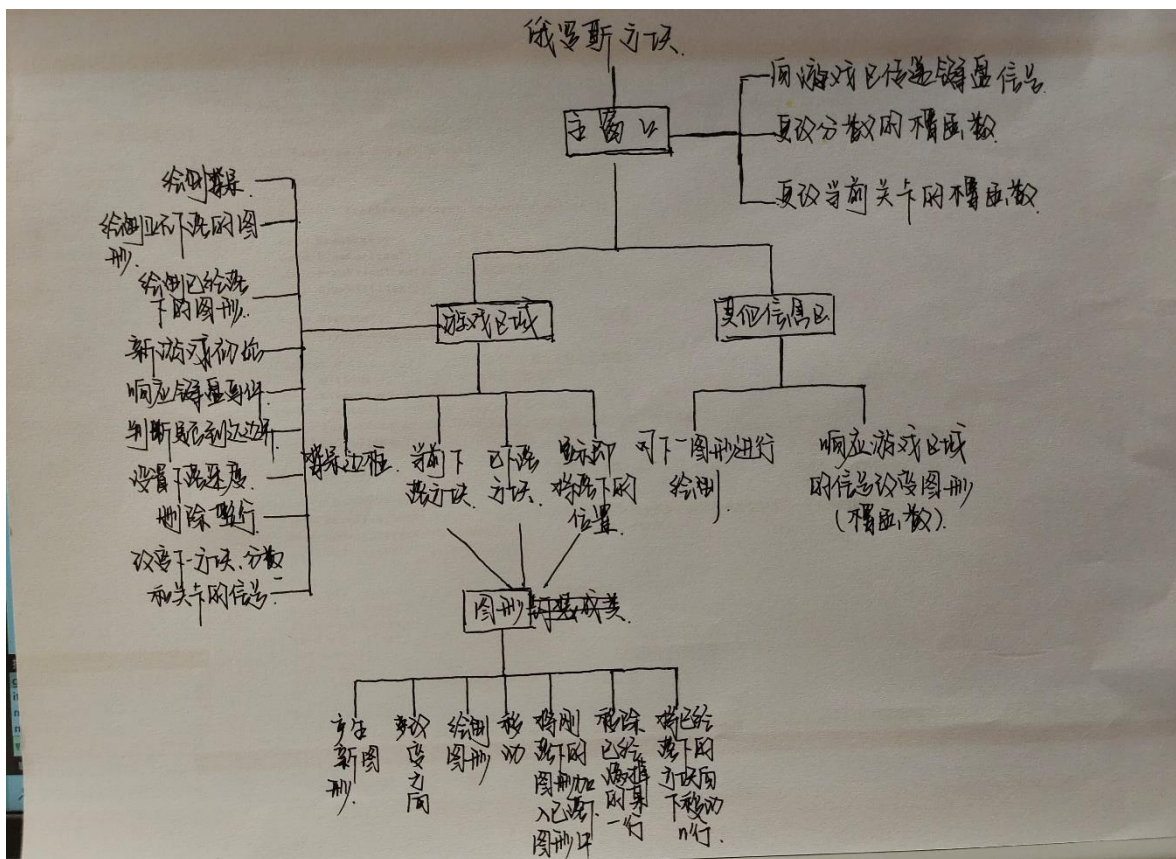 俄罗斯方块
主窗口
向游戏区传递键盘信号
更改分数的槽函数
更改当前关卡的槽函数
绘制背景
绘制正在下落的图
形
绘制已经落
下的图形
新游戏初始
响应键盘事件
判断是否到达边界
设置下落速度
删除整行
改变下一方块、分数
和关卡的信号
游戏区域
其他信息区
背景边框
当前下
落方块
已下落
方块
显示即
将落下的
位置
对下一图形进行
绘制
响应游戏区域
的信号改变图形
(槽函数)
图形
封装成类
产生
新图
形
改
变方
向
绘制
图形
移
动
将刚
落下的
图形加
入已落下
图形中
移除
已经
的某
一行
将已经
落下的
方块向
下移动
n行